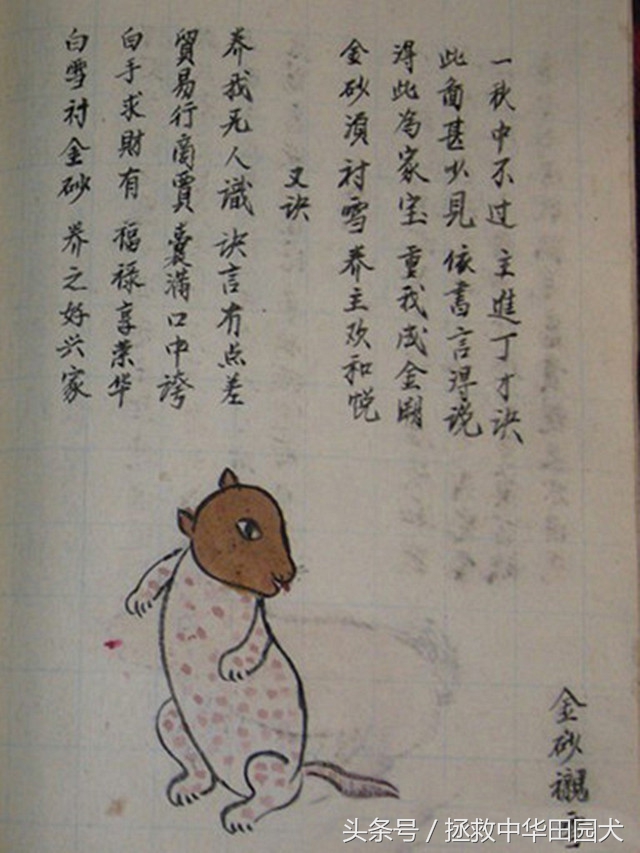 一秋中不过 主進丁才诀
此畜甚少見 依書言得说
得此為家宝 重我成金
金砂湏衬雪 养主欢和悦
又诀
养我无人識 诀言有点差
貿易行商賈 囊满口中誇
白手求財有 福禄享荣华
白雪衬金砂 养之好兴家
金砂襯雪
头条号 / 拯救中华田园犬